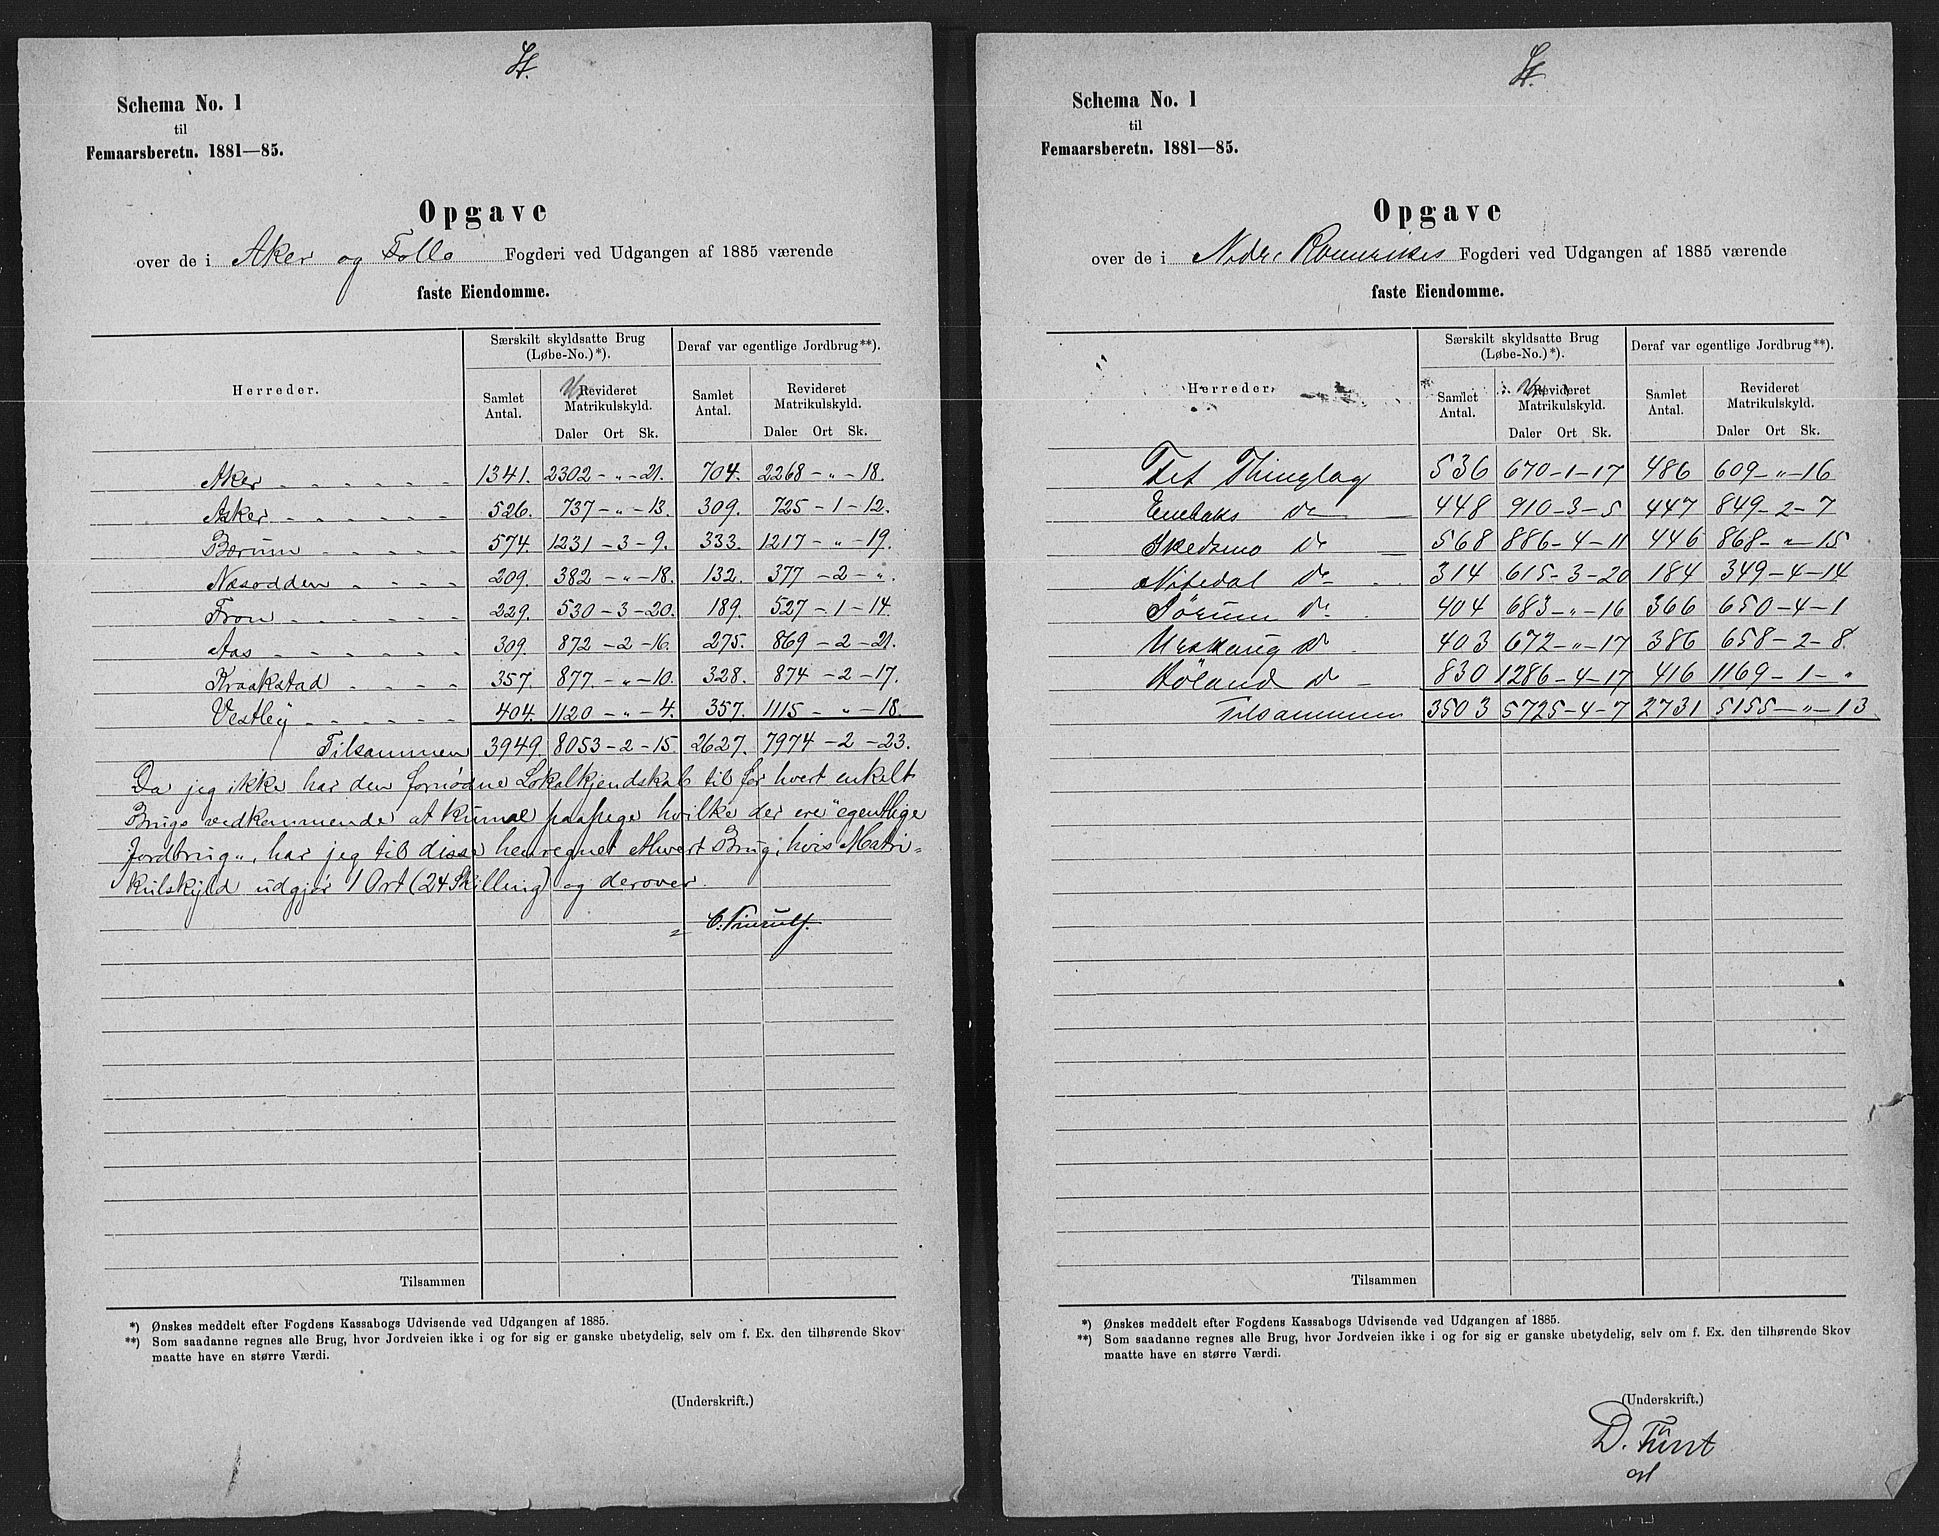 Schema No. 1
til
Femaarsberetn. 1881—85.
Opgave
over de i Aker og Follo Fogderi ved Udgangen af 1885 værende
faste Eiendomme.
Herreder. Særskilt skyldsatte Brug (Løbe-No.)*). Deraf var egentlige Jordbrug**).
Samlet Antal. Revideret Matrikulskyld. Samlet Antal. Revideret Matrikulskyld.
Daler Ort Sk. Daler Ort Sk.
Aker 1341. 2302 - " - 21. 704. 2268 - " - 18.
Asker 526. 737 - " - 13. 309. 725 - 1 - 12.
Bærum 574. 1231 - 3 - 9. 333. 1217 - " - 19.
Næsodden 209. 382 - " - 18. 132. 377 - 2 - ".
Fron 229. 530 - 3 - 20. 189. 527 - 1 - 14.
Aas 309. 872 - 2 - 16. 275. 869 - 2 - 21.
Kraakstad 357. 877. - " - 10. 328. 874 - 2 - 17.
Vestby 404. 1120 - " - 4. 357. 1115 - " - 18.
Tilsammen 3949. 8053 - 2 - 15. 2627. 7974 - 2 - 23.
Da jeg ikke har den fornødne Lokalkjendskab til for hvert enkelt
Brugs vedkommende at kunne paapege hvilke der ere "egentlige
Jordbrug", har jeg til disse henregnet ethvert Brug, hvis Matri=
kulskyld udgjør 1 Ort (24 Skilling) og derover.
Tilsammen
*) Ønskes meddelt efter Fogdens Kassabogs Udvisende ved Udgangen af 1885.
**) Som saadanne regnes alle Brug, hvor Jordveien ikke i og for sig er ganske ubetydelig, selv om f. Ex. den tilhørende Skov
maatte have en større Værdi.
(Underskrift.)
Schema No. 1
til
Femaarsberetn. 1881—85.
Opgave
over de i Nedre Romerikes Fogderi ved Udgangen af 1885 værende
faste Eiendomme.
Herreder. Særskilt skyldsatte Brug (Løbe-No.)*). Deraf var egentlige Jordbrug**).
Samlet Antal. Revideret Matrikulskyld. Samlet Antal. Revideret Matrikulskyld.
Daler Ort Sk. Daler Ort Sk.
Fet Thinglag 536 670 - 1 - 17 486 609 - " - 16
Enebaks do 448 910 - 3 - 5 447 849 - 2 - 7
Skedsmo do 568 886 - 4 - 11 446 868 - " - 15
Nitedal do 314 615 - 3 - 20 184 349 - 4 - 14
Sørum do 404 683 - " - 16 366 650 - 4 - 1
Urskoug do 403 672 - " - 17 386 658 - 2 - 8
Høland do 830 1286 - 4 - 17 416 1169 - 1 - "
Tilsammen 3503 5725 - 4 - 7 2731 5155 - " - 13
Tilsammen
*) Ønskes meddelt efter Fogdens Kassabogs Udvisende ved Udgangen af 1885.
**) Som saadanne regnes alle Brug, hvor Jordveien ikke i og for sig er ganske ubetydelig, selv om f. Ex. den tilhørende Skov
maatte have en større Værdi.
(Underskrift.)
D. Fürst